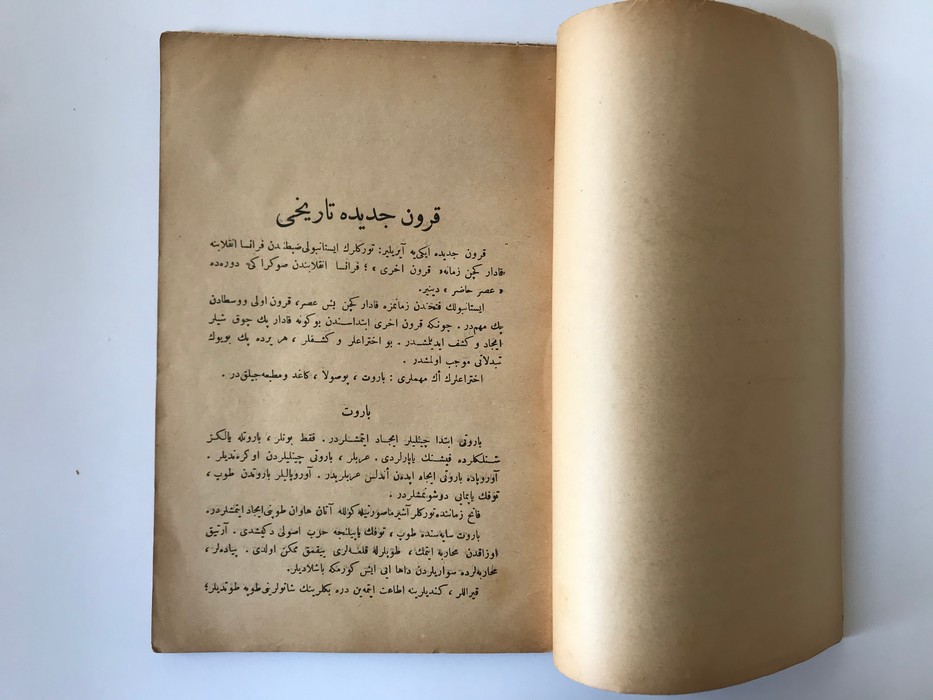 قرون جدیده تاریخی
قرون جدیده ایکی‌یه آیریلیر: تورکلرك ایستانبولی ضبطندن فرانسا انقلابنه
قادار کچن زمانه « قرون اخری » ؛ فرانسا انقلابندن صوکراکی دوره‌ده
« عصر حاضر » دینیر.
ایستانبولك فتحندن زمانمزه قادار کچن بش عصر، قرون اولی ووسطادن
پك مهم‌در . چونکه قرون اخری ابتداسندن بوکونه قادار پك چوق شیلر
ایجاد و کشف ایدیلمشدر . بو اختراعلر و کشفلر ، هر یرده پك بویوك
تبدلاتی موجب اولمشدر .
اختراعلرك أك مهملری : باروت ، پوصولا ، کاغد و مطبعه‌جیلق‌در .
باروت
باروتی ابتدا چینلیلر ایجاد ایتمشلردر . فقط بونلر ، باروتله یالکز
شنلکلرده فیشنك یاپارلردی . عربلر ، باروتی چینلیلردن اوکرندیلر .
آوروپاده باروتی ایجاد ایدن أندلس عربلریدر . آوروپالیلر باروتدن طوپ ،
توفك یاپمایی دوشونمشلردر .
فاتح زماننده تورکلر آشیرماصورتیله کوللە آتان هاوان طوپنی ایجاد ایتمشلردر.
باروت سایه‌سنده طوپ ، توفك یاپیلنجه حرب اصولی دکیشدی . آرتیق
اوزاقدن محاربه ایتمك ، طوپلرله قلعه‌لری ییقمق ممکن اولدی . پیاده‌لر ،
محاربه‌لرده سواریلردن داها ایی ایش کورمکه باشلادیلر.
قیراللر ، کندیلرینه اطاعت ایتمه‌ین دره بکلرینك شاتولرینی طوپه طوتدیلر؛